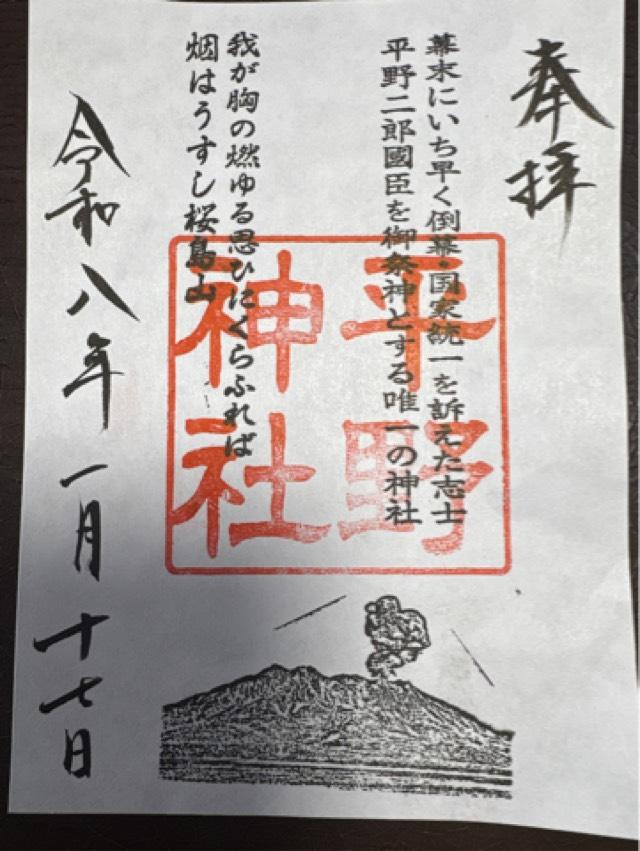 奉拝
幕末にいち早く倒幕・国家統一を訴えた志士
平野二郎國臣を御祭神とする唯一の神社
平野
神社
我が胸の燃ゆる思ひにくらふれば
烟はうすし桜島山
令和八年一月十七日